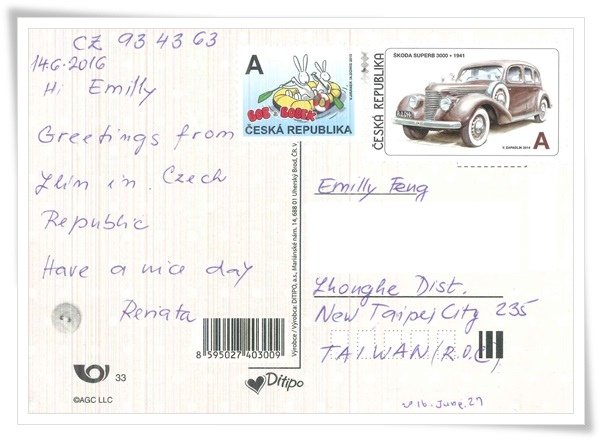 CZ 93 43 63
14.6.2016
Hi Emilly
Greetings from
Zlin in Czech
Republic
Have a nice day
Renata
33
©AGC LLC
8 595027 403009
Ditipo
Výrobce / Výrobca: DITIPO, a.s., Mariánské nám. 14, 688 01 Uherský Brod, ČR. V.
A
BOB & BOBEK
ČESKÁ REPUBLIKA
ČESKÁ REPUBLIKA
ŠKODA SUPERB 3000 • 1941
A
V. ZAPADLÍK 2014
Emilly Feng
Zhonghe Dist.
New Taipei City 235
TAIWAN (R.O.C)
16. June. 27